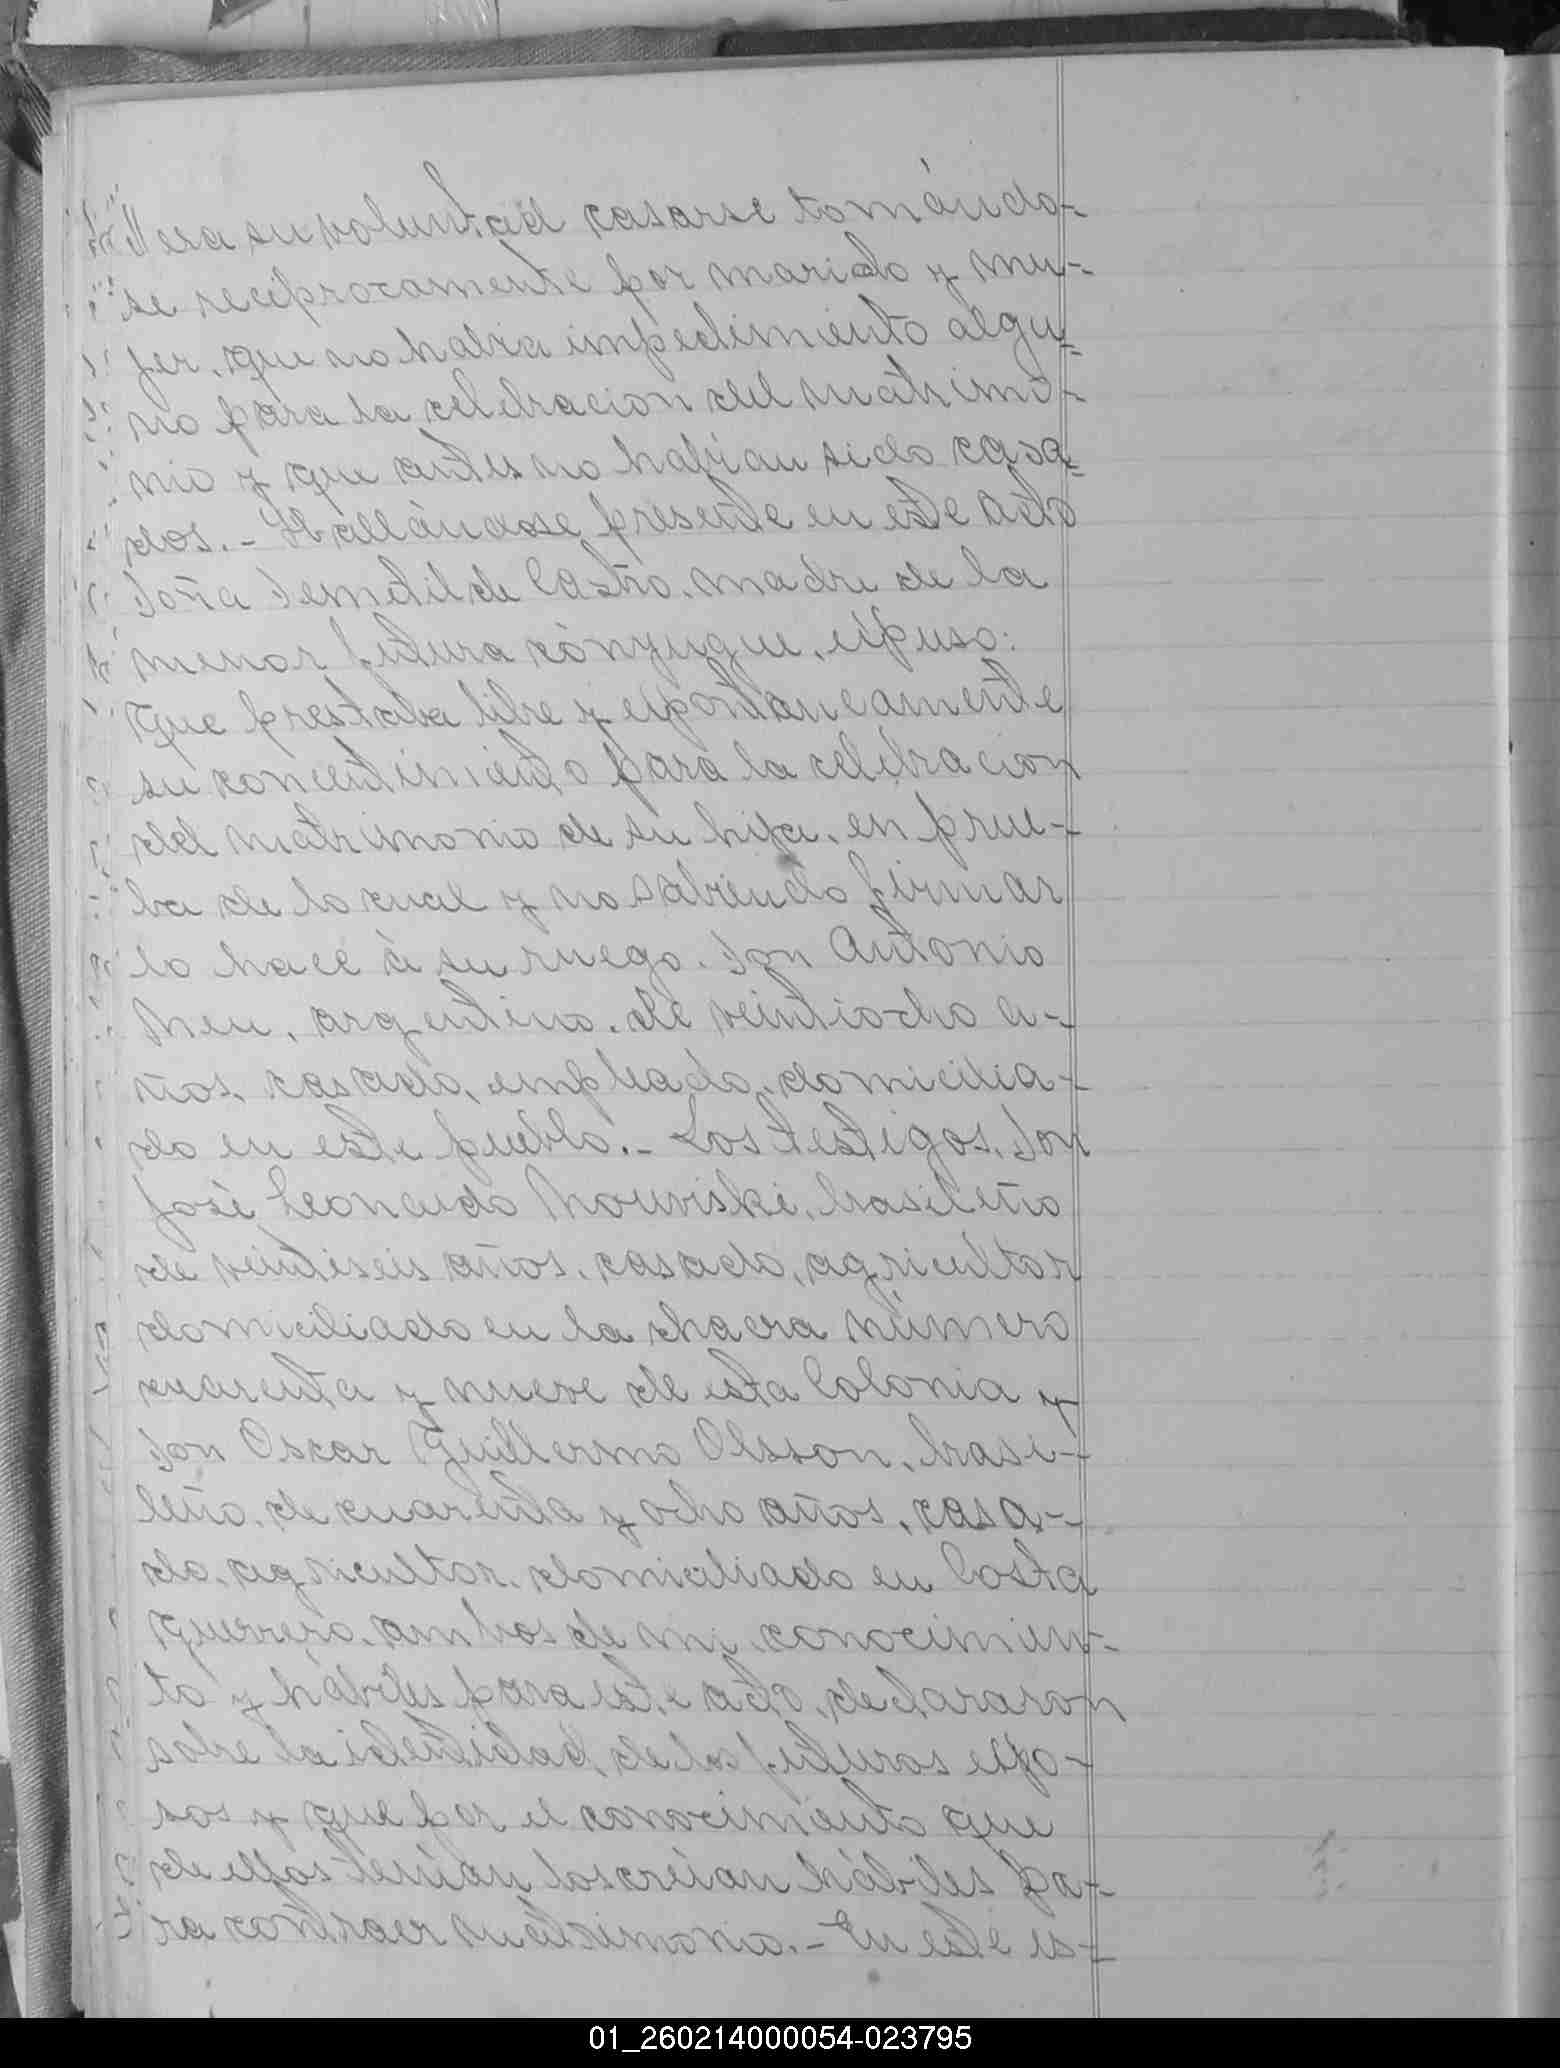 era su voluntad casarse tomándo-
se recíprocamente por marido y mu-
jer, que no habia impedimiento algu-
no para la celebracion del matrimo-
nio y que antes no habian sido casa-
dos.- Hallándose presente en este acto
Doña Castro, madre de la
menor futura cónyugue, expuso:
Que prestaba libre y expontaneamente
su concentimiento para la celebracion
del matrimonio de su hija, en prue-
ba de lo cual y no sabiendo firmar
lo hace à su ruego. Don Antonio
argentino, de veintiocho a-
ños, casado, empleado, domicilia-
do en este pueblo.- Los testigos, Don
José brasileño
de veintiseis años, casado, agricultor
domiciliado en la chacra número
cuarenta y nueve de esta Colonia y
Don Oscar Guillermo Olsson, brasi-
leño, de cuarenta y ocho años, casa-
do, agricultor, domiciliado en Costa
Guerrero, ambos de mi conocimien-
to y hábiles para este acto, declararon
sobre la identidad de los futuros espo-
sos y que por el conocimiento que
de ellos tenían los creían hábiles pa-
ra contraer matrimonio.- En este es-
01_260214000054-023795